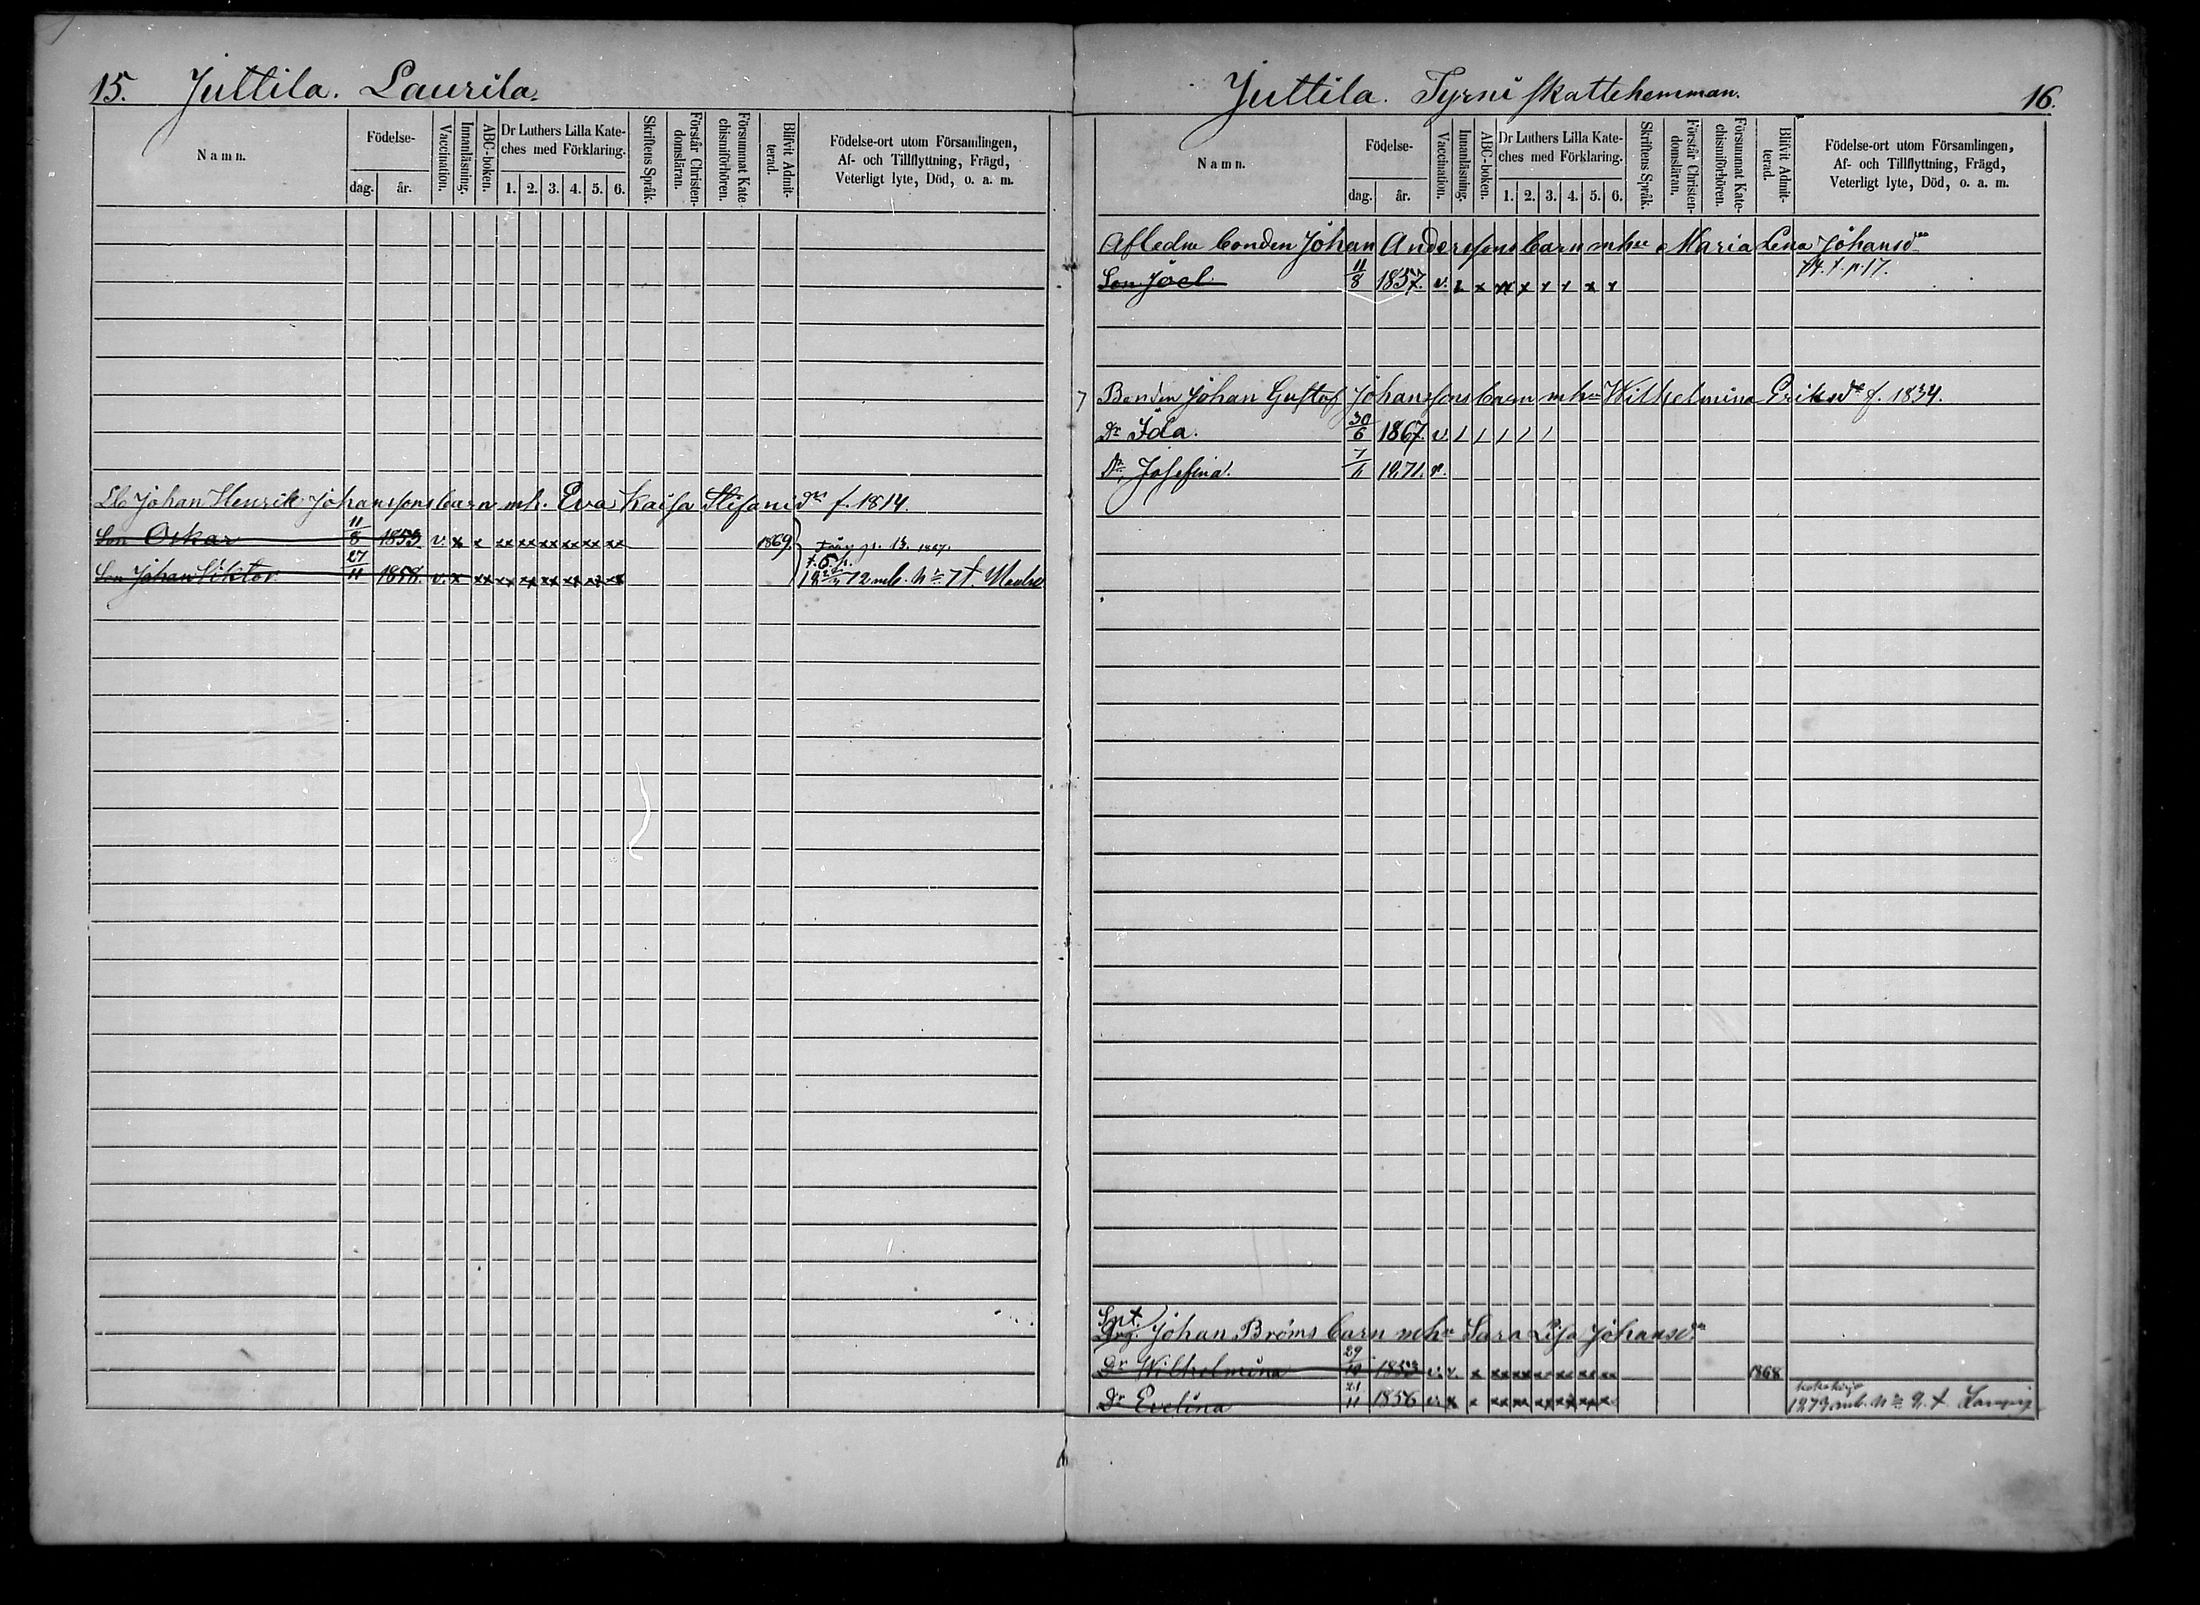 15. Juttila. Laurila.
Namn.
Födelse-
dag. år.
Vaccination.
Innanläsning.
ABC-boken.
Dr Luthers Lilla Kate-
ches med Förklaring.
1. 2. 3. 4. 5. 6.
Skriftens Språk.
Förstår Christen-
domsläran.
Försummat Kate-
chismiförhören.
Blifvit Admit-
terad.
Födelse-ort utom Församlingen,
Af- och Tillflyttning, Frägd,
Veterligt lyte, Död, o. a. m.
Johan Henrik Johanssons barn mh. Eva Kaisa Stefansdr f. 1814.
Son Oskar 11/8 1853 v. x x xx xx xx xx xx xx 1869
Son Johan Viktor 27/11 1858. v. x xx xx xx xx xx xx x 1872 mb. N 7 t.
Juttila. Tyrni skattehemman. 16.
Namn.
Födelse-
dag. år.
Vaccination.
Innanläsning.
ABC-boken.
Dr Luthers Lilla Kate-
ches med Förklaring.
1. 2. 3. 4. 5. 6.
Skriftens Språk.
Förstår Christen-
domsläran.
Försummat Kate-
chismiförhören.
Blifvit Admit-
terad.
Födelse-ort utom Församlingen,
Af- och Tillflyttning, Frägd,
Veterligt lyte, Död, o. a. m.
Afledne bonden Johan Anderssons barn mhu Maria Lena Johansdr
Son Joel 11/8 1857. v. x x x x x x x p. 17.
Bonden Johan Gustaf Johanssons barn mhu Wilhelmina Eriksdr f. 1834.
Dr Ida. 30/6 1867. v / / / / /
Dr Josefina. 7/11 1871. v.
Johan Broms barn mhu Sara Lisa Johansdr
Dr Wilhelmina 29/10 1853 v. v. x xx xx xx xx xx xx 1868
Dr Evelina 21/11 1856 v. x x xx xx xx xx xx xx 1873 mb. N 9. t.